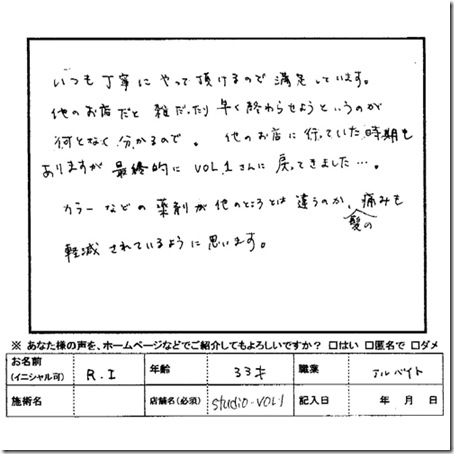 いつも丁寧にやって頂けるので満足しています。
他のお店だと雑だったり早く終わらせようというのが
何となく分かるので。他のお店に行っていた時期も
ありますが最終的にVOL.1さんに戻ってきました…。
カラーなどの薬剤が他のところとは違うのか、髪の痛みも
軽減されているように思います。
※ あなた様の声を、ホームページなどでご紹介してもよろしいですか？ □はい □匿名で □ダメ
お名前 (イニシャル可) R.I 年齢 33才 職業 アルバイト
施術名 店舗名(必須) studio-VOL1 記入日 年 月 日